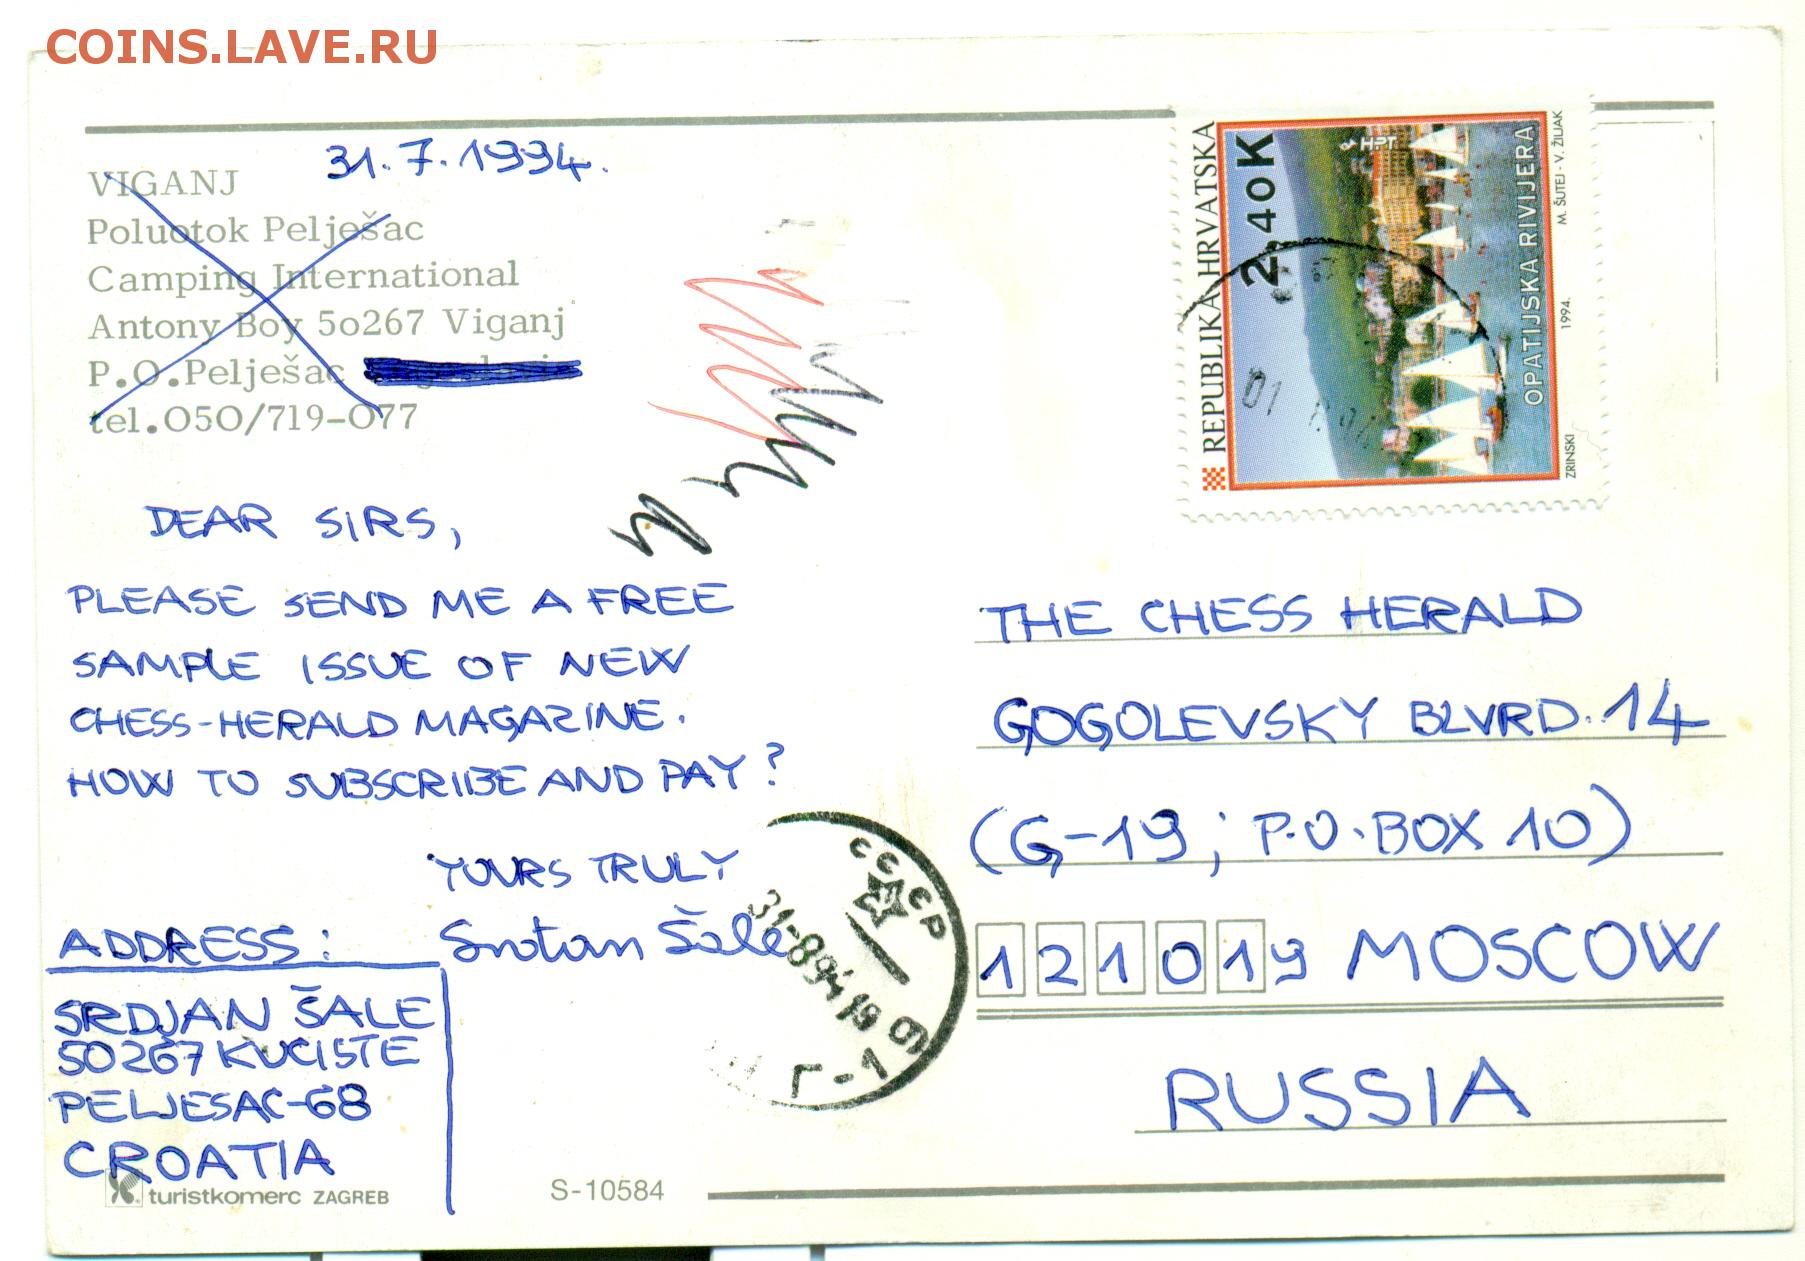 COINS.LAVE.RU
31.7.1994.
VIGANJ
Poluotok Pelješac
Camping International
Antony Boy 50267 Viganj
P.O.Pelješac
tel.050/719-077
DEAR SIRS,
PLEASE SEND ME A FREE
SAMPLE ISSUE OF NEW
CHESS-HERALD MAGAZINE.
HOW TO SUBSCRIBE AND PAY?
YOURS TRULY
Šale
ADDRESS:
SRDJAN ŠALE
50267 KUCISTE
PELJESAC-68
CROATIA
turistkomerc ZAGREB
S-10584
REPUBLIKA HRVATSKA
2,40K
HPT
OPATIJSKA RIVIJERA
ZRINSKI
1994.
M. ŠUTEJ - V. ŽILJAK
01
THE CHESS HERALD
GOGOLEVSKY BLVRD. 14
(G-19; P.O. BOX 10)
121019 MOSCOW
RUSSIA
СССР
31-8 94 19
Г-19